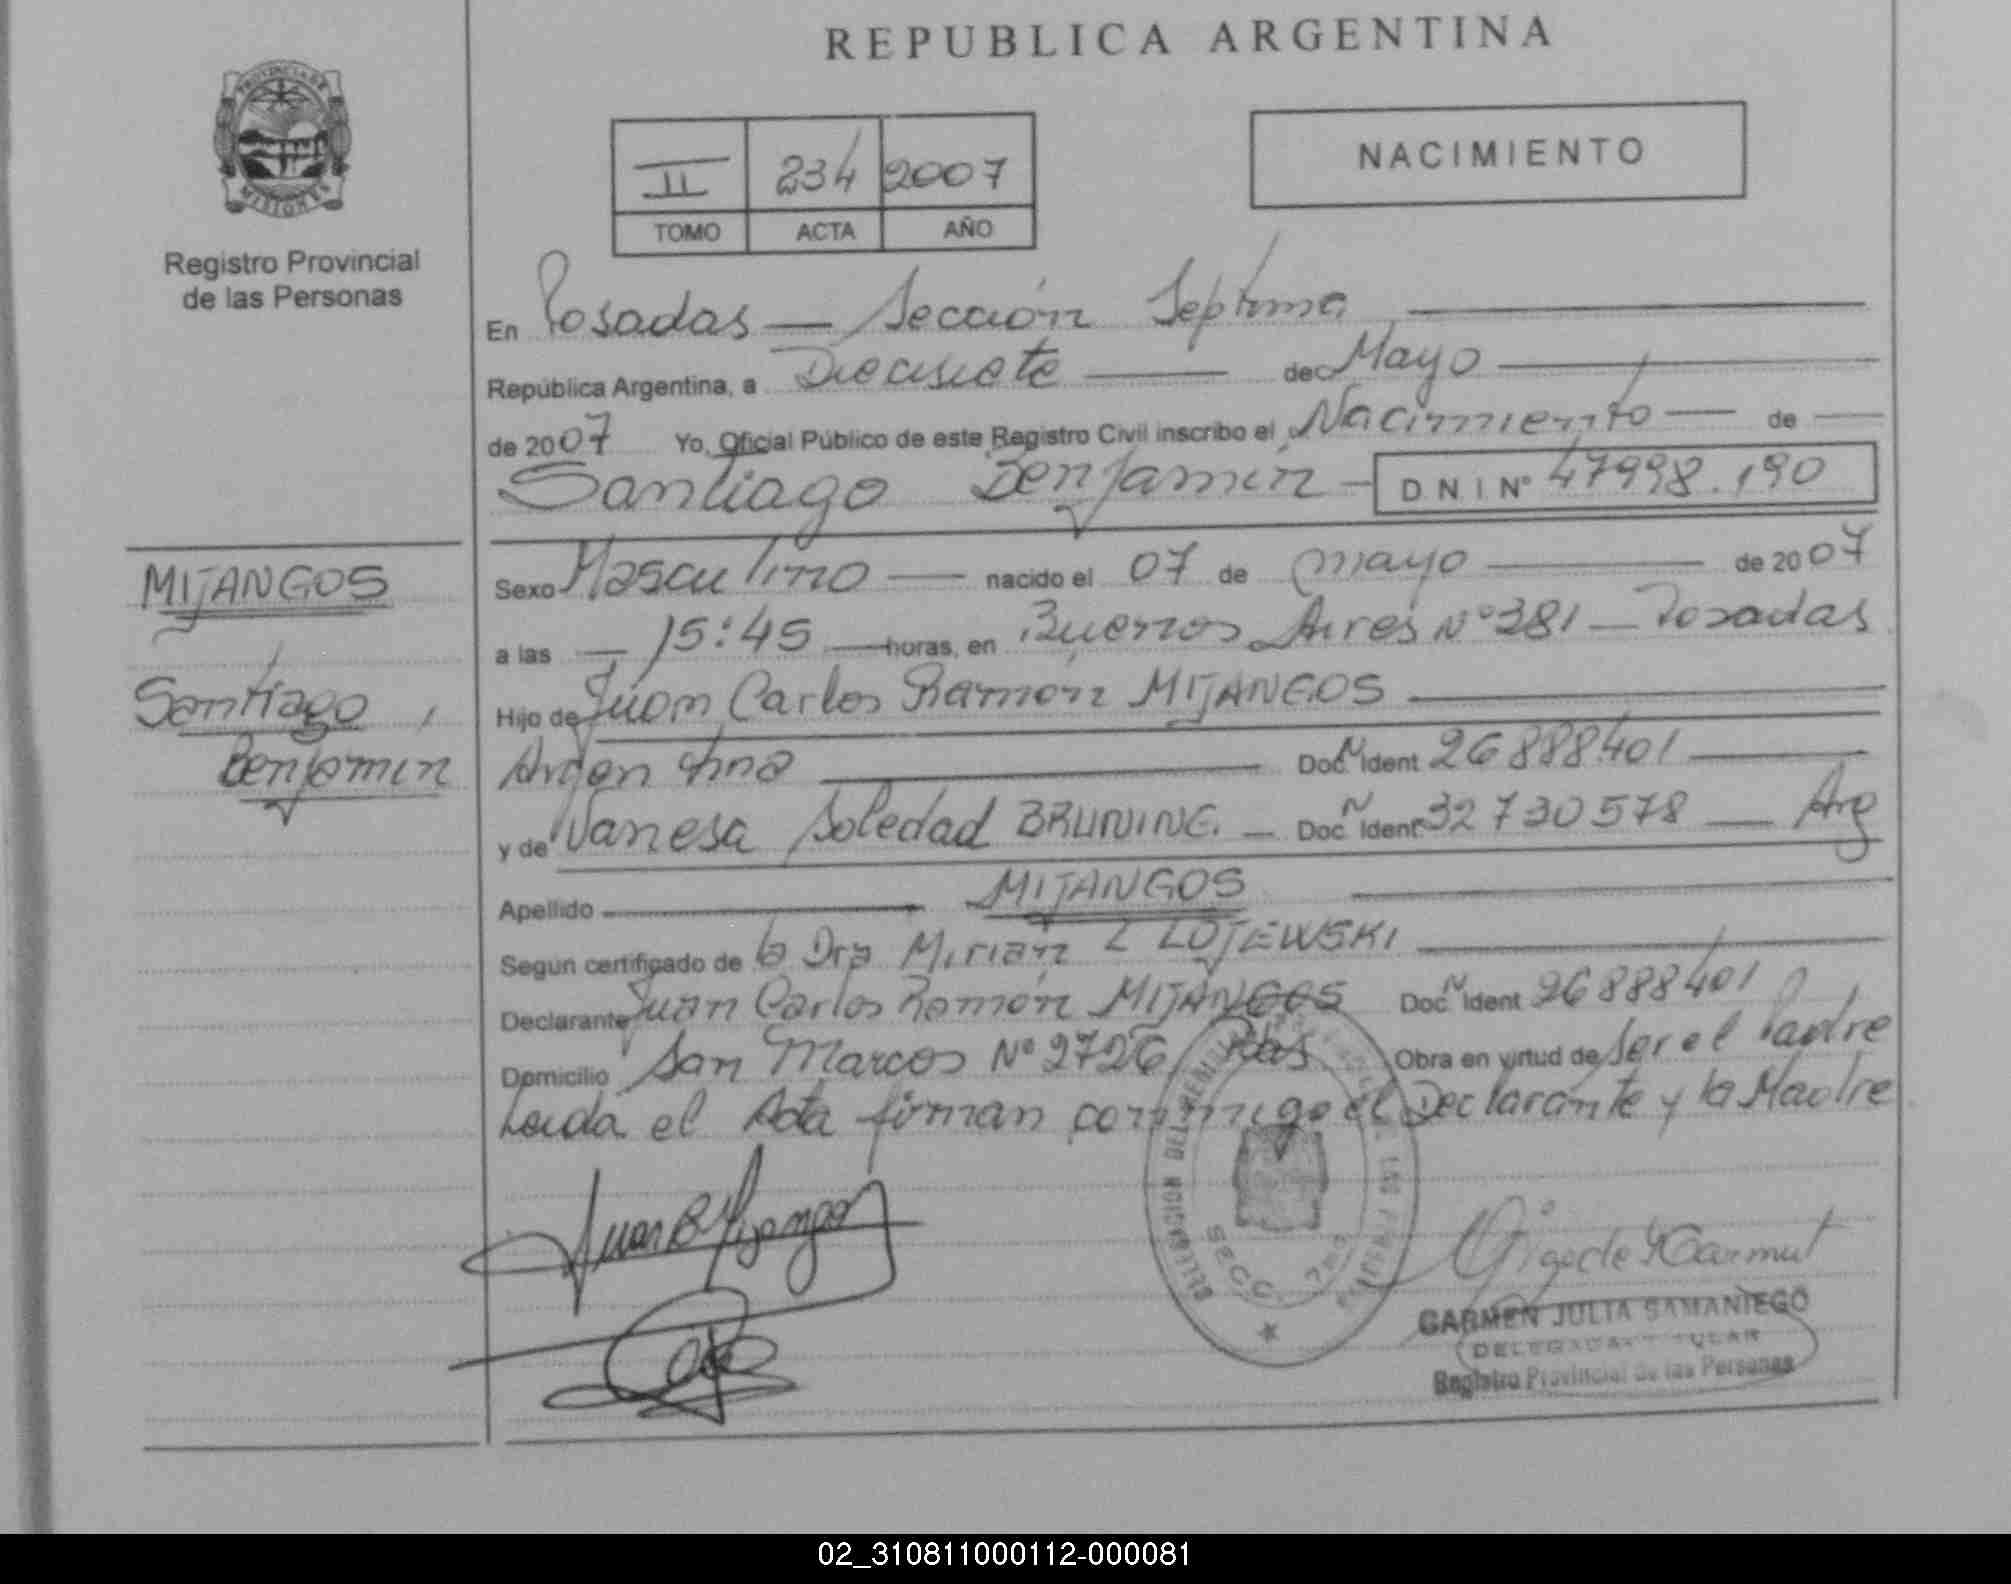 REPUBLICA ARGENTINA
PROVINCIA DE
MISIONES
Registro Provincial
de las Personas
II 234 2007
TOMO ACTA AÑO
NACIMIENTO
En Posadas — Sección Septima
República Argentina, a Diecisiete — de Mayo
de 2007 Yo, Oficial Público de este Registro Civil inscribo el Nacimiento — de
Santiago Benjamín — D N I Nº 47998.190
MIJANGOS
Santiago
Benjamín
Sexo Masculino — nacido el 07 de mayo — de 2007
a las — 15:45 — horas, en Buenos Aires Nº 381 — Posadas
Hijo de Juan Carlos Ramón MIJANGOS
Argentina — Doc Ident 26888.401
y de Vanesa Soledad BRUNING. — Doc Ident 32730578 — Arg
Apellido — MIJANGOS
Segun certificado de la Dra Mirian L LOJEWSKI
Declarante Juan Carlos Ramón MIJANGOS Doc Ident 26888401
Domicilio San Marcos Nº 2726 Pdas Obra en virtud de Ser el Padre
Leida el Acta firman conmigo el Declarante y la Madre
SECC. 7ma
CARMEN JULIA SAMANIEGO
DELEGADA TITULAR
Registro Provincial de las Personas
02_310811000112-000081